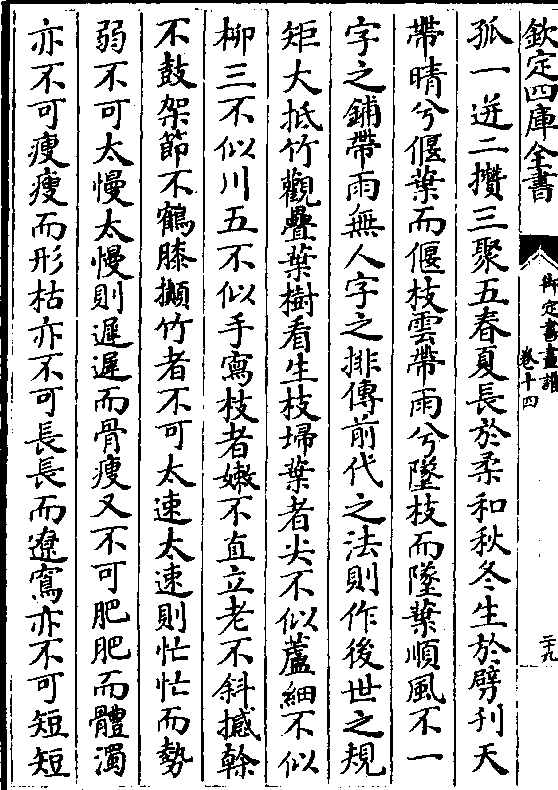 欽定四庫全書
御定書畫譜
卷十四
二九
孤一迸二攢三聚五春夏長於柔和秋冬生於劈刋天
帶晴兮偃葉而偃枝雲帶雨兮墜枝而墜葉順風不一
字之鋪帶雨無人字之排傳前代之法則作後世之規
矩大抵竹觀疊葉樹看生枝埽葉者尖不似蘆細不似
柳三不似川五不似手寫枝者嫩不直立老不斜撼榦
不鼓架節不鶴膝擷竹者不可太速太速則忙忙而勢
弱不可太慢太慢則遲遲而骨瘦又不可肥肥而體濁
亦不可瘦瘦而形枯亦不可長長而遼寫亦不可短短